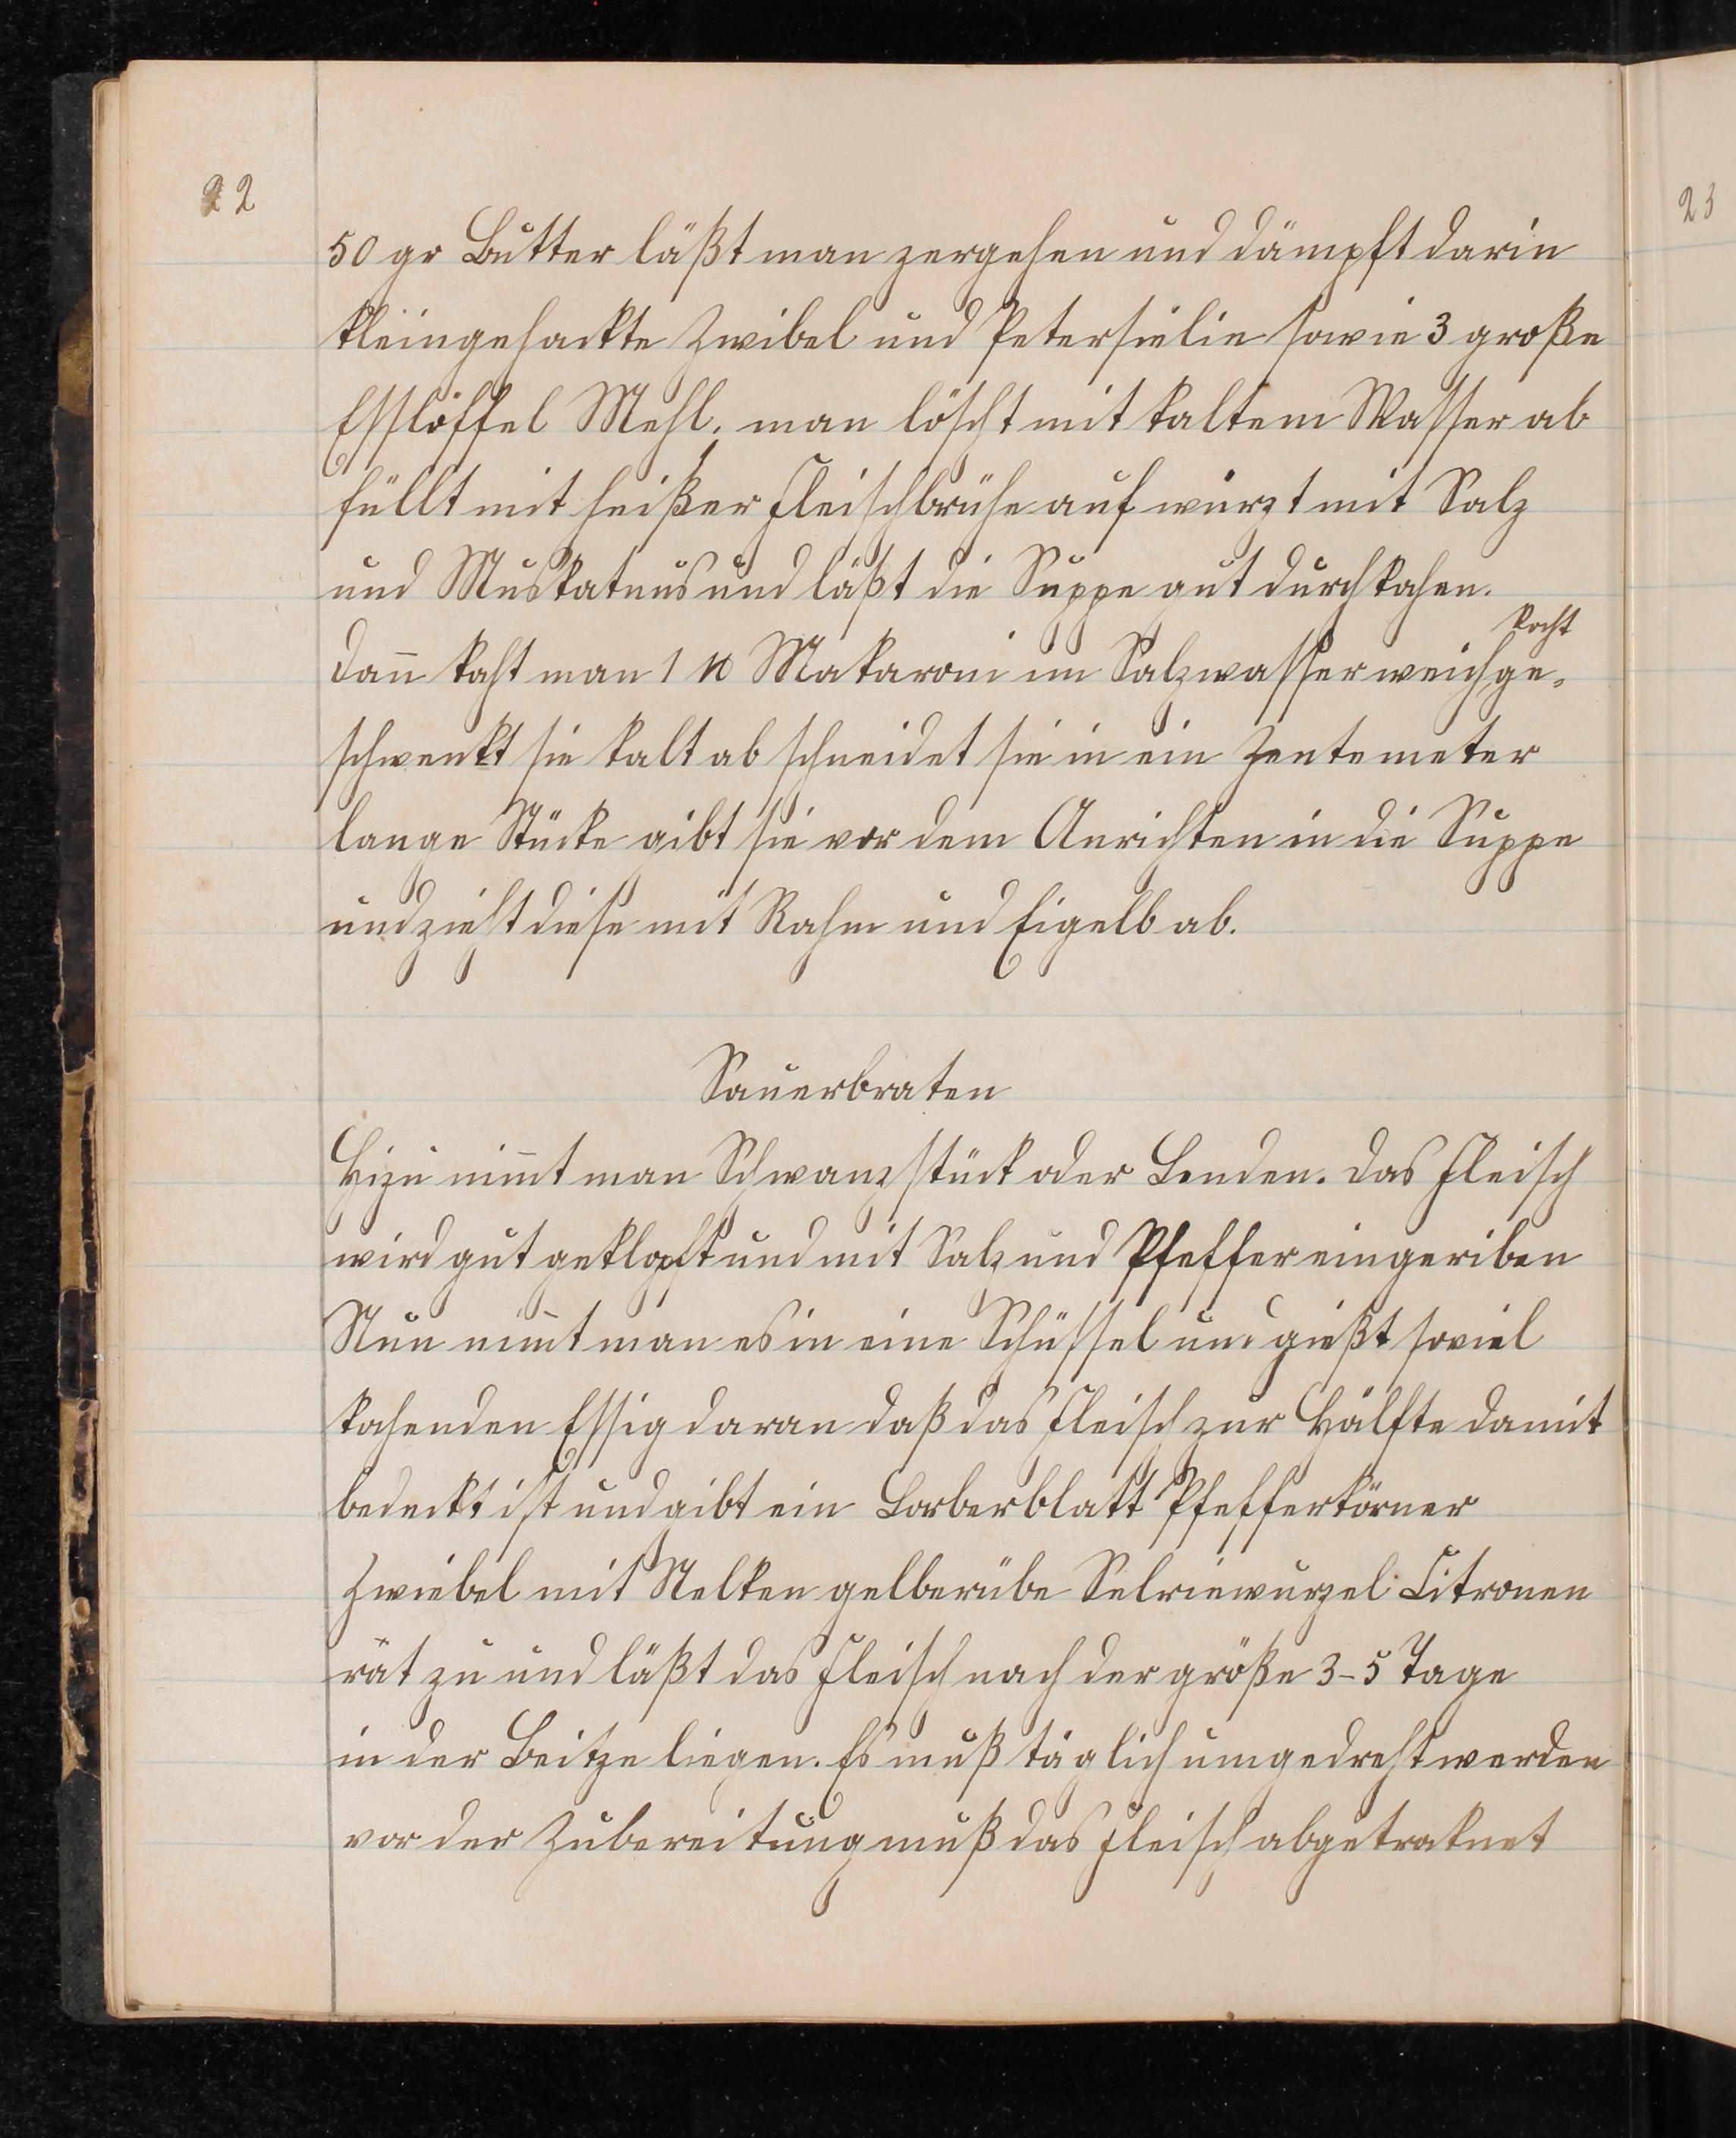 22
23
50 gr Butter läßt man zergehen und dämpft darin
kleingehackte Zwibel und Petersielie sowie 3 große
Esslöffel Mehl; man löscht mit kaltem Wasser ab
füllt mit heißer Fleischbrühe auf würzt mit Salz
und Muskatnus und läßt die Suppe gut durchkohen.
Dann koht man 1 ℔ Makaroni im Salzwasser weichge-
kocht
schwenkt sie kalt ab schneidet sie in ein Zentemeter
lange Stücke gibt sie vor dem Anrichten in die Suppe
und zieht diese mit Rahm und Eigelb ab.
Sauerbraten
Hizu nim̅t man Schwanzstück oder Lenden. Das Fleisch
wird gut geklopft und mit Salz und Pfeffer eingeriben
Nun nim̅t man es in eine Schüssel und gießt soviel
kohenden Essig daran daß das Fleisch zur Hälfte damit
bedeckt ist und gibt ein Lorberblatt Pfefferkörner
Zwiebel mit Nelken gelberübe Selriewurzel Citronen
rat zu und läßt das Fleisch nach der größe 3-5 Tage
in der Beitze liegen. Es muß täglich umgedreht werden
vor der Zubereitung muß das Fleisch abgetroknet